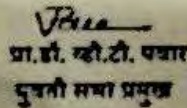 प्रा.डॉ. व्ही.टी. पवार
पुवती सभा प्रमुख